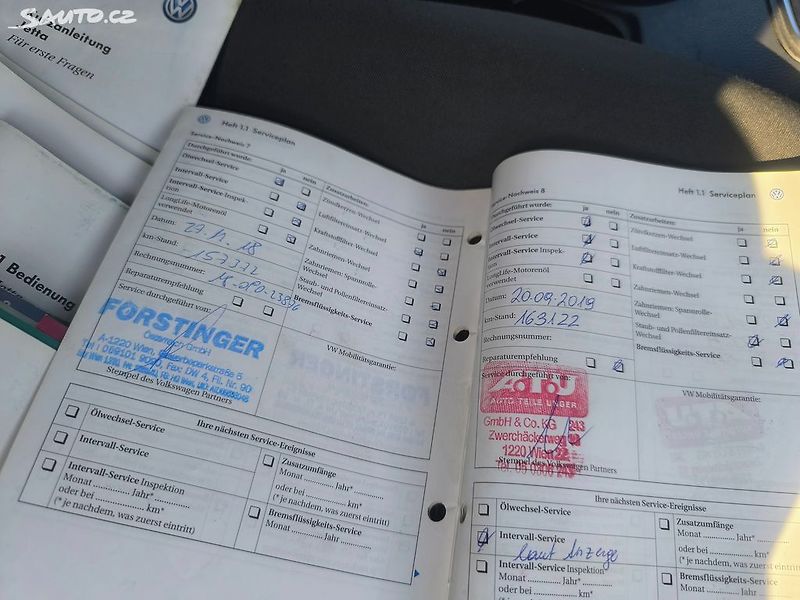 SAUTO.CZ
Kurzanleitung
Jetta
Für erste Fragen
1 Bedienung
Heft 1.1 Serviceplan
Service-Nachweis 7
Durchgeführt wurde:
ja
nein
Ölwechsel-Service
Intervall-Service
Intervall-Service-Inspek-
tion
LongLife-Motorenöl
verwendet
Datum:
km-Stand:
157372
Rechnungsnummer:
Reparaturempfehlung
Service durchgeführt von:
FÖRSTINGER
Österreich GmbH
Stempel des Volkswagen Partners
Zusatzarbeiten:
ja
nein
Zündkerzen-Wechsel
Luftfiltereinsatz-Wechsel
Kraftstofffilter-Wechsel
Zahnriemen-Wechsel
Zahnriemen: Spannrolle-
Wechsel
Staub- und Pollenfiltereinsatz-
Wechsel
Bremsflüssigkeits-Service
VW Mobilitätsgarantie:
Ihre nächsten Service-Ereignisse
Ölwechsel-Service
Intervall-Service
Intervall-Service Inspektion
Monat ............ Jahr* ............
oder bei ............ km*
(* je nachdem, was zuerst eintritt)
Zusatzumfänge
Monat ............ Jahr* ............
oder bei ............ km*
(* je nachdem, was zuerst eintritt)
Bremsflüssigkeits-Service
Monat ............ Jahr ............
Heft 1.1 Serviceplan
Service-Nachweis 8
Durchgeführt wurde:
ja
nein
Ölwechsel-Service
Intervall-Service
Intervall-Service Inspek-
tion
LongLife-Motorenöl
verwendet
Datum: 20.09.2019
km-Stand: 163122
Rechnungsnummer:
Reparaturempfehlung
Service durchgeführt von:
A.T.U
AUTO TEILE UNGER
GmbH & Co. KG 243
Zwerchäckerweg
1220 Wien
Stempel des Volkswagen Partners
Zusatzarbeiten:
ja
nein
Zündkerzen-Wechsel
Luftfiltereinsatz-Wechsel
Kraftstofffilter-Wechsel
Zahnriemen-Wechsel
Zahnriemen: Spannrolle-
Wechsel
Staub- und Pollenfiltereinsatz-
Wechsel
Bremsflüssigkeits-Service
VW Mobilitätsgarantie:
Ihre nächsten Service-Ereignisse
Ölwechsel-Service
Intervall-Service
laut Anzeige
Intervall-Service Inspektion
Monat ............ Jahr* ............
oder bei ............ km*
(* je nachdem, was zuerst eintritt)
Zusatzumfänge
Monat ............ Jahr* ............
oder bei ............ km*
(* je nachdem, was zuerst eintritt)
Bremsflüssigkeits-Service
Monat ............ Jahr ............